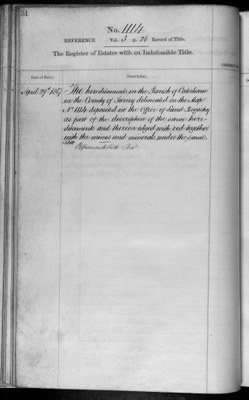 No. 1114
REFERENCE Vol. 3 p. 26 Record of Title.
The Register of Estates with an Indefeasible Title.
Date of Entry. Description.
April 29th 1867 The hereditaments in the Parish of Caterham
in the County of Surrey delineated on the Map
No. 1114 deposited in the Office of Land Registry
as part of the description of the same here-
ditaments and thereon edged with red together
with the mines and minerals under the same.